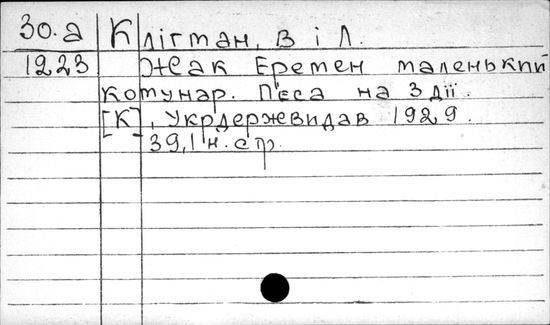 30.а Клігман, В і Л.
1223 Жак Еремен маленький
комунар. П'єса на 3 дії.
[К], Укрдержвидав 1929.
39, 1 н. стр.